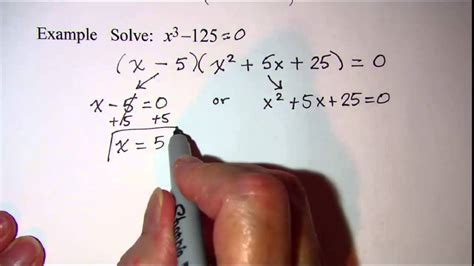 Example Solve: x³–125=0
(x – 5)(x² + 5x + 25) = 0
x – 5 = 0 or x² + 5x + 25 = 0
+5 +5
x = 5
Sharpie